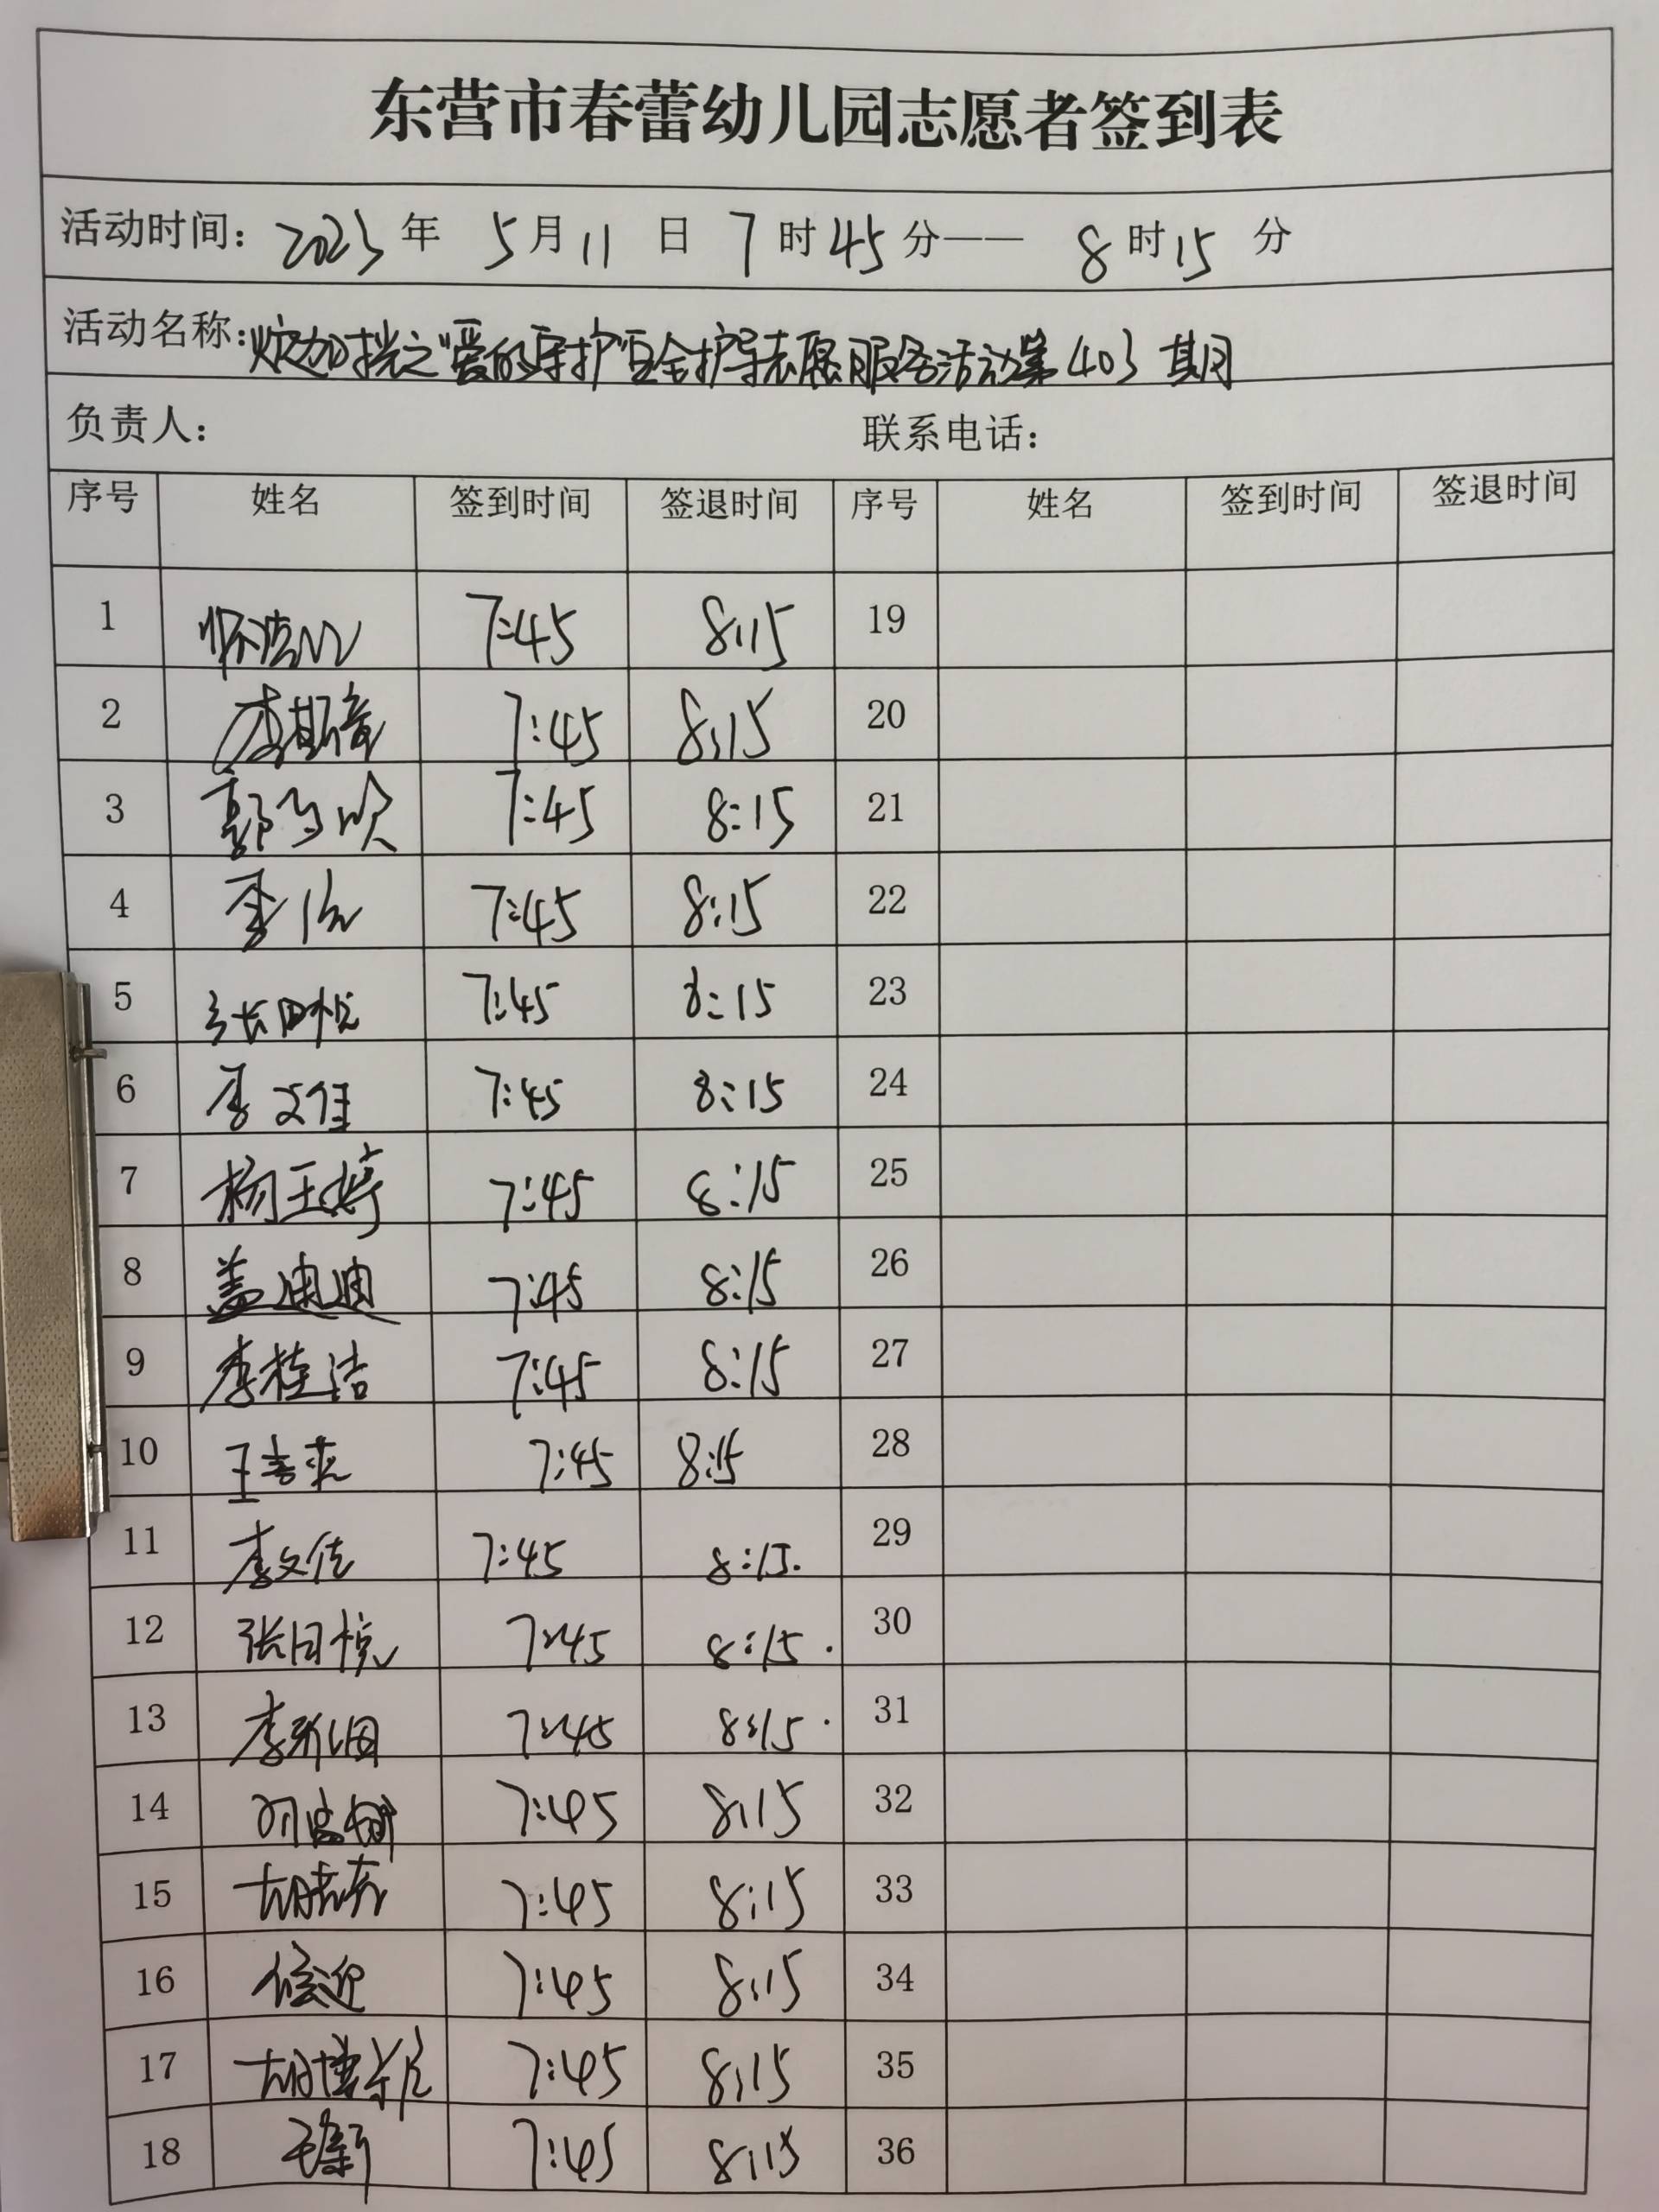 东营市春蕾幼儿园志愿者签到表
活动时间: 2023 年 5 月 11 日 7 时 45 分—— 8 时 15 分
活动名称: "爱的守护"安全护导志愿服务活动第403期
负责人: 联系电话:
序号 姓名 签到时间 签退时间 序号 姓名 签到时间 签退时间
1 7:45 8:15 19
2 李斯 7:45 8:15 20
3 7:45 8:15 21
4 7:45 8:15 22
5 张日悦 7:45 8:15 23
6 李文佳 7:45 8:15 24
7 杨玉婷 7:45 8:15 25
8 盖迪迪 7:45 8:15 26
9 李桂洁 7:45 8:15 27
10 王 7:45 8:15 28
11 李文佳 7:45 8:15. 29
12 张日悦 7:45 8:15. 30
13 李 7:45 8:15. 31
14 7:45 8:15 32
15 胡 7:45 8:15 33
16 侯迎 7:45 8:15 34
17 胡博 7:45 8:15 35
18 毛新 7:45 8:15 36